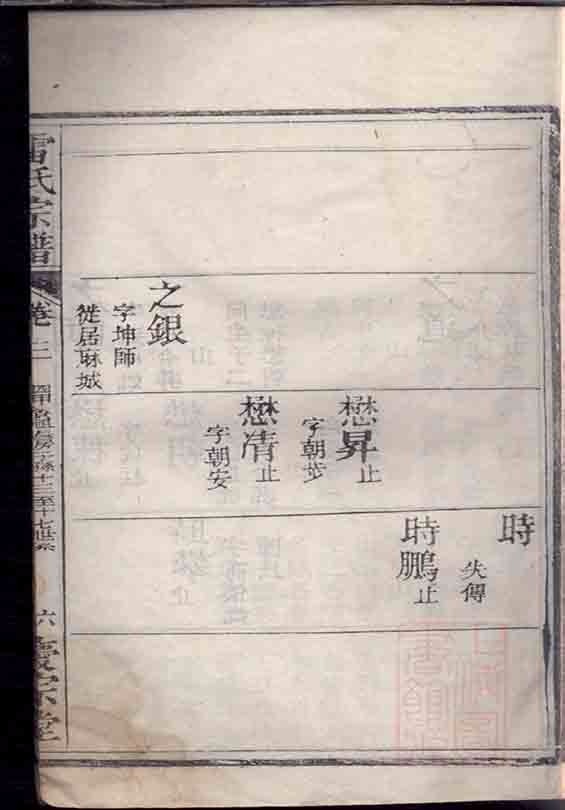 時
失傳
時鵬止
懋昇止
字朝步
懋清止
字朝安
之銀
字坤師
徙居麻城
雷氏宗譜
卷三
六
慶宗堂